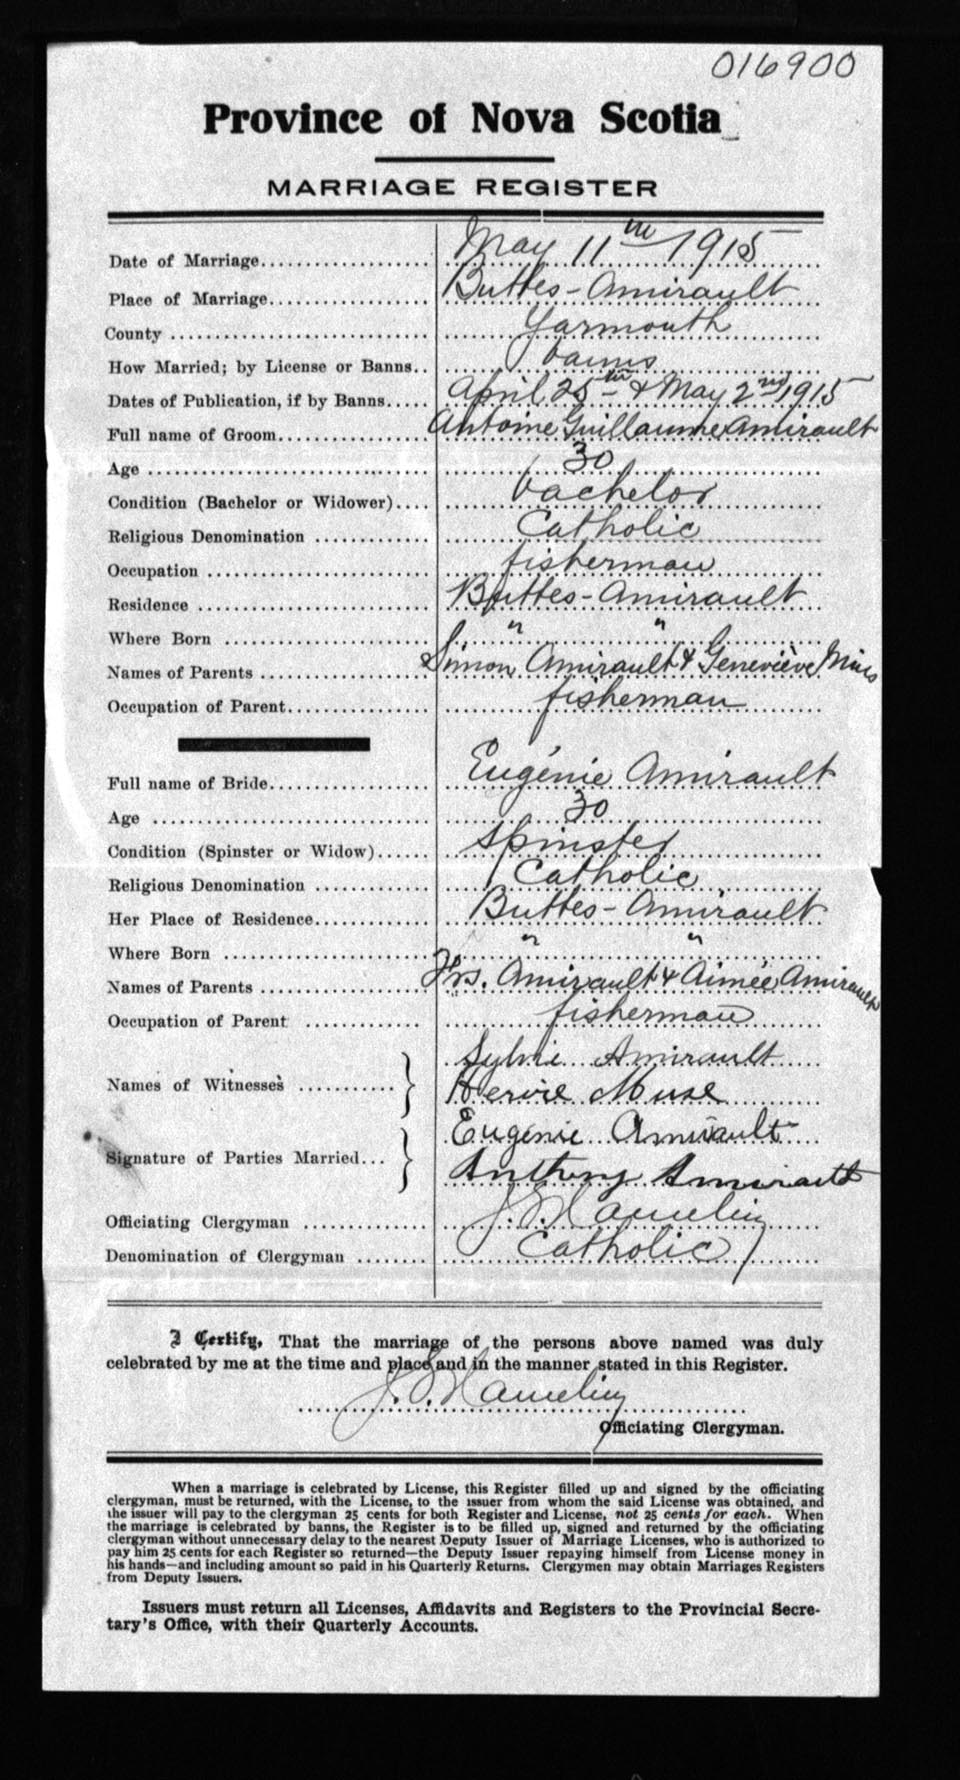 016900
Province of Nova Scotia
MARRIAGE REGISTER
Date of Marriage.................... May 11th 1915
Place of Marriage.................. Buttes-Amirault
County ............................ Yarmouth
How Married; by License or Banns.. banns
Dates of Publication, if by Banns..... April 25th & May 2nd 1915
Full name of Groom................. Antoine Guillaume Amirault
Age ............................... 30
Condition (Bachelor or Widower).... bachelor
Religious Denomination ............ Catholic
Occupation ........................ fisherman
Residence ......................... Buttes-Amirault
Where Born ........................ " "
Names of Parents .................. Simon Amirault & Geneviève Mius
Occupation of Parent............... fisherman
Full name of Bride................. Eugénie Amirault
Age ............................... 30
Condition (Spinster or Widow)...... spinster
Religious Denomination ............ Catholic
Her Place of Residence............. Buttes-Amirault
Where Born ........................ " "
Names of Parents .................. Frs. Amirault & Aimée Amirault
Occupation of Parent .............. fisherman
Names of Witnesses ........... } Sylvie Amirault
Muse
Signature of Parties Married... } Eugénie Amirault
Anthony Amirault
Officiating Clergyman ............. J. Hamelin
Denomination of Clergyman ........ Catholic
I Certify, That the marriage of the persons above named was duly
celebrated by me at the time and place and in the manner stated in this Register.
J. Hamelin
Officiating Clergyman.
When a marriage is celebrated by License, this Register filled up and signed by the officiating
clergyman, must be returned, with the License, to the issuer from whom the said License was obtained, and
the issuer will pay to the clergyman 25 cents for both Register and License, not 25 cents for each. When
the marriage is celebrated by banns, the Register is to be filled up, signed and returned by the officiating
clergyman without unnecessary delay to the nearest Deputy Issuer of Marriage Licenses, who is authorized to
pay him 25 cents for each Register so returned—the Deputy Issuer repaying himself from License money in
his hands—and including amount so paid in his Quarterly Returns. Clergymen may obtain Marriages Registers
from Deputy Issuers.
Issuers must return all Licenses, Affidavits and Registers to the Provincial Secre-
tary's Office, with their Quarterly Accounts.